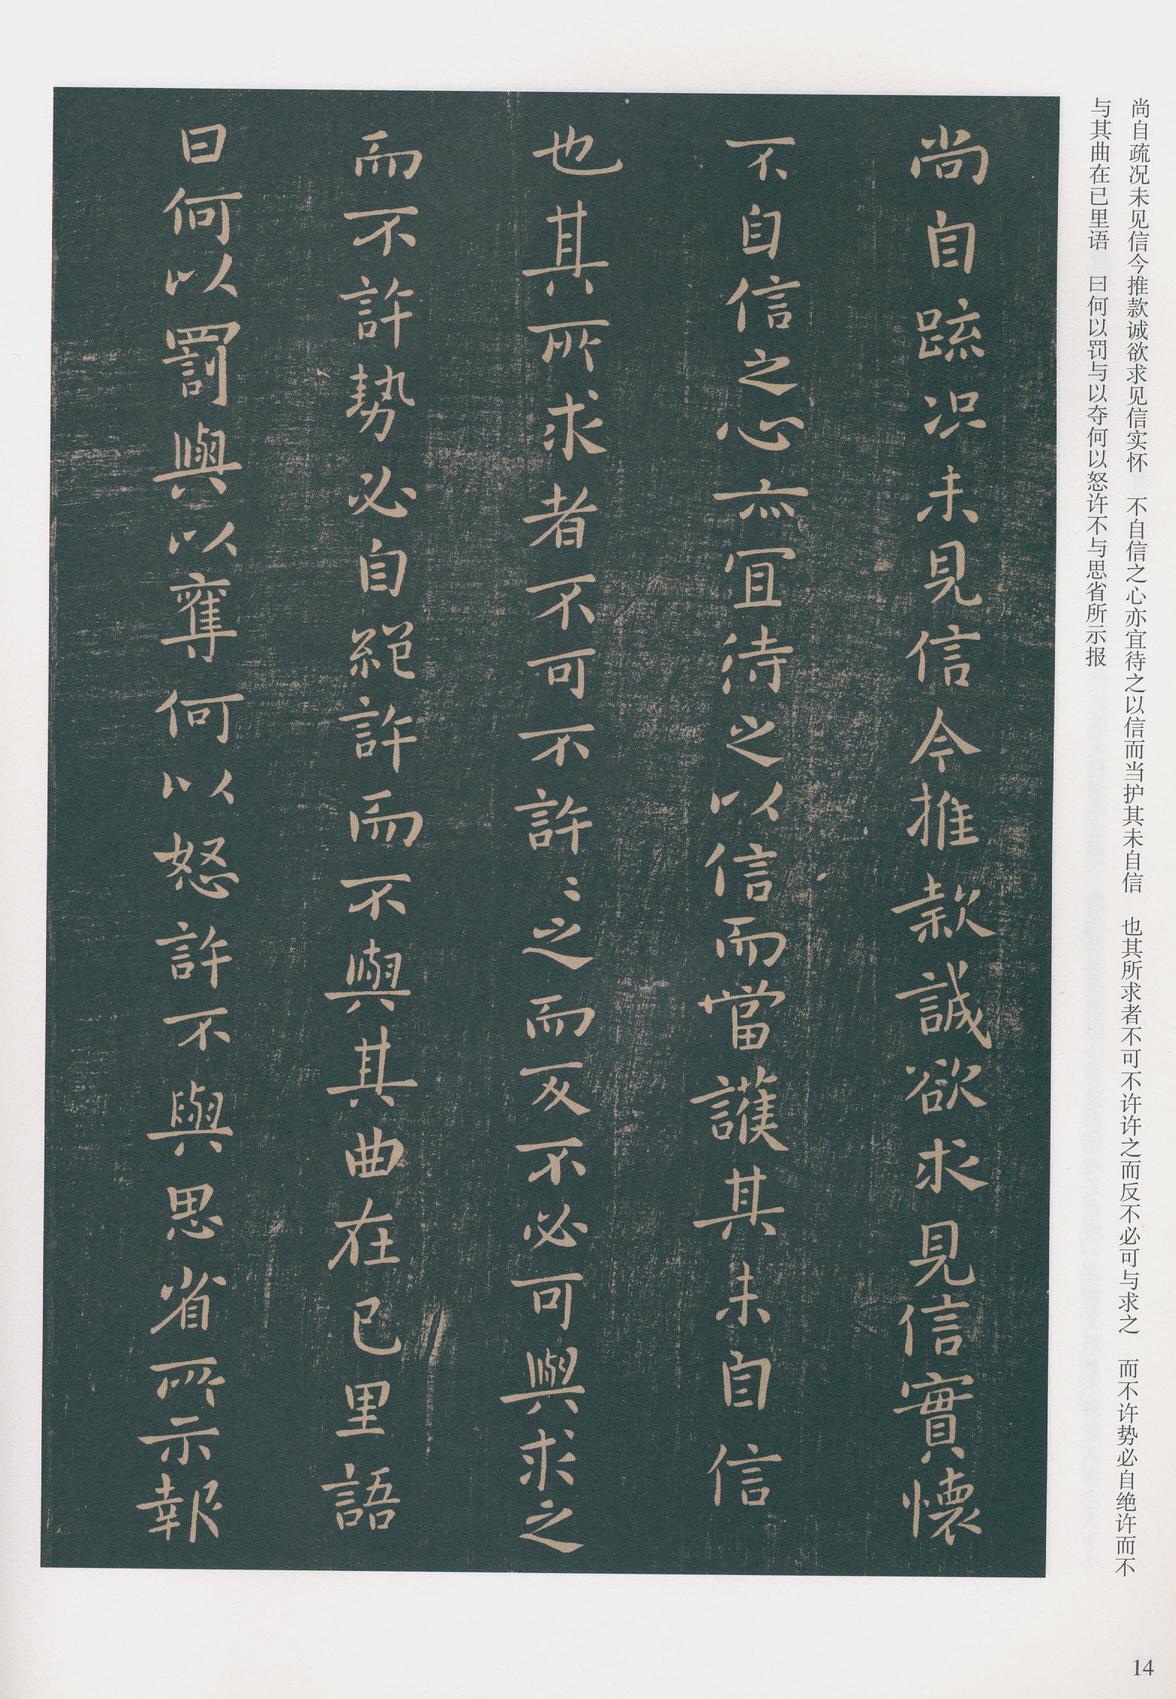 尚自疏况未见信今推款诚欲求见信实怀　不自信之心亦宜待之以信而当护其未自信　也其所求者不可不许许之而反不必可与求之　而不许势必自绝许而不
与其曲在已里语　曰何以罚与以夺何以怒许不与思省所示报
尚自疏况未見信今推款誠欲求見信實懷
不自信之心亦宜待之以信而當護其未自信
也其所求者不可不許〻之而反不必可與求之
而不許勢必自絕許而不與其曲在已里語
曰何以罰與以奪何以怒許不與思省所示報
14